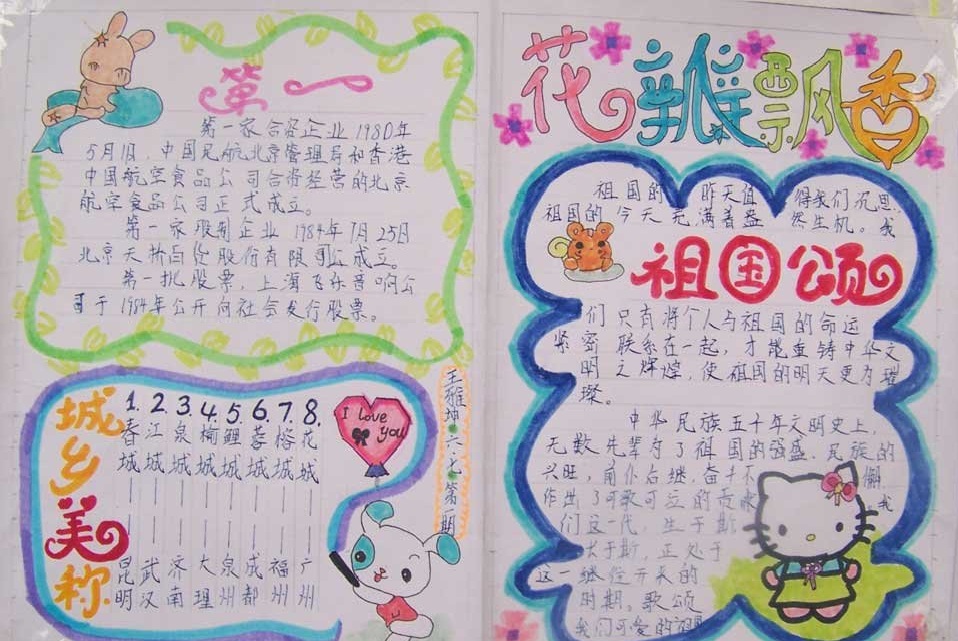 第一
第一家合资企业 1980年
5月1日,中国民航北京管理局和香港
中国航空食品公司合资经营的北京
航空食品公司正式成立。
第一家股制企业 1984年7月25日
北京天桥百货股份有限公司成立。
第一批股票,上海飞乐音响公
司于1984年公开向社会发行股票。
城乡美称
1. 2. 3. 4. 5. 6. 7. 8.
春城——昆明
江城——武汉
泉城——济南
榆城——大理
鲤城——泉州
蓉城——成都
榕城——福州
花城——广州
I love
you
王雅坤 六 第一期
花瓣飘香
祖国的昨天值得我们沉思,
祖国的今天充满着盎然生机。我
祖国颂
们只有将个人与祖国的命运
紧密联系在一起,才能重铸中华文
明之辉煌,使祖国的明天更为璀
璨。
中华民族五千年文明史上,
无数先辈为了祖国的强盛、民族的
兴旺,前仆后继,奋斗不懈,
作出了可歌可泣的贡献 我
们这一代,生于斯
长于斯,正处于
这一继往开来的
时期,歌颂
我们可爱的祖国